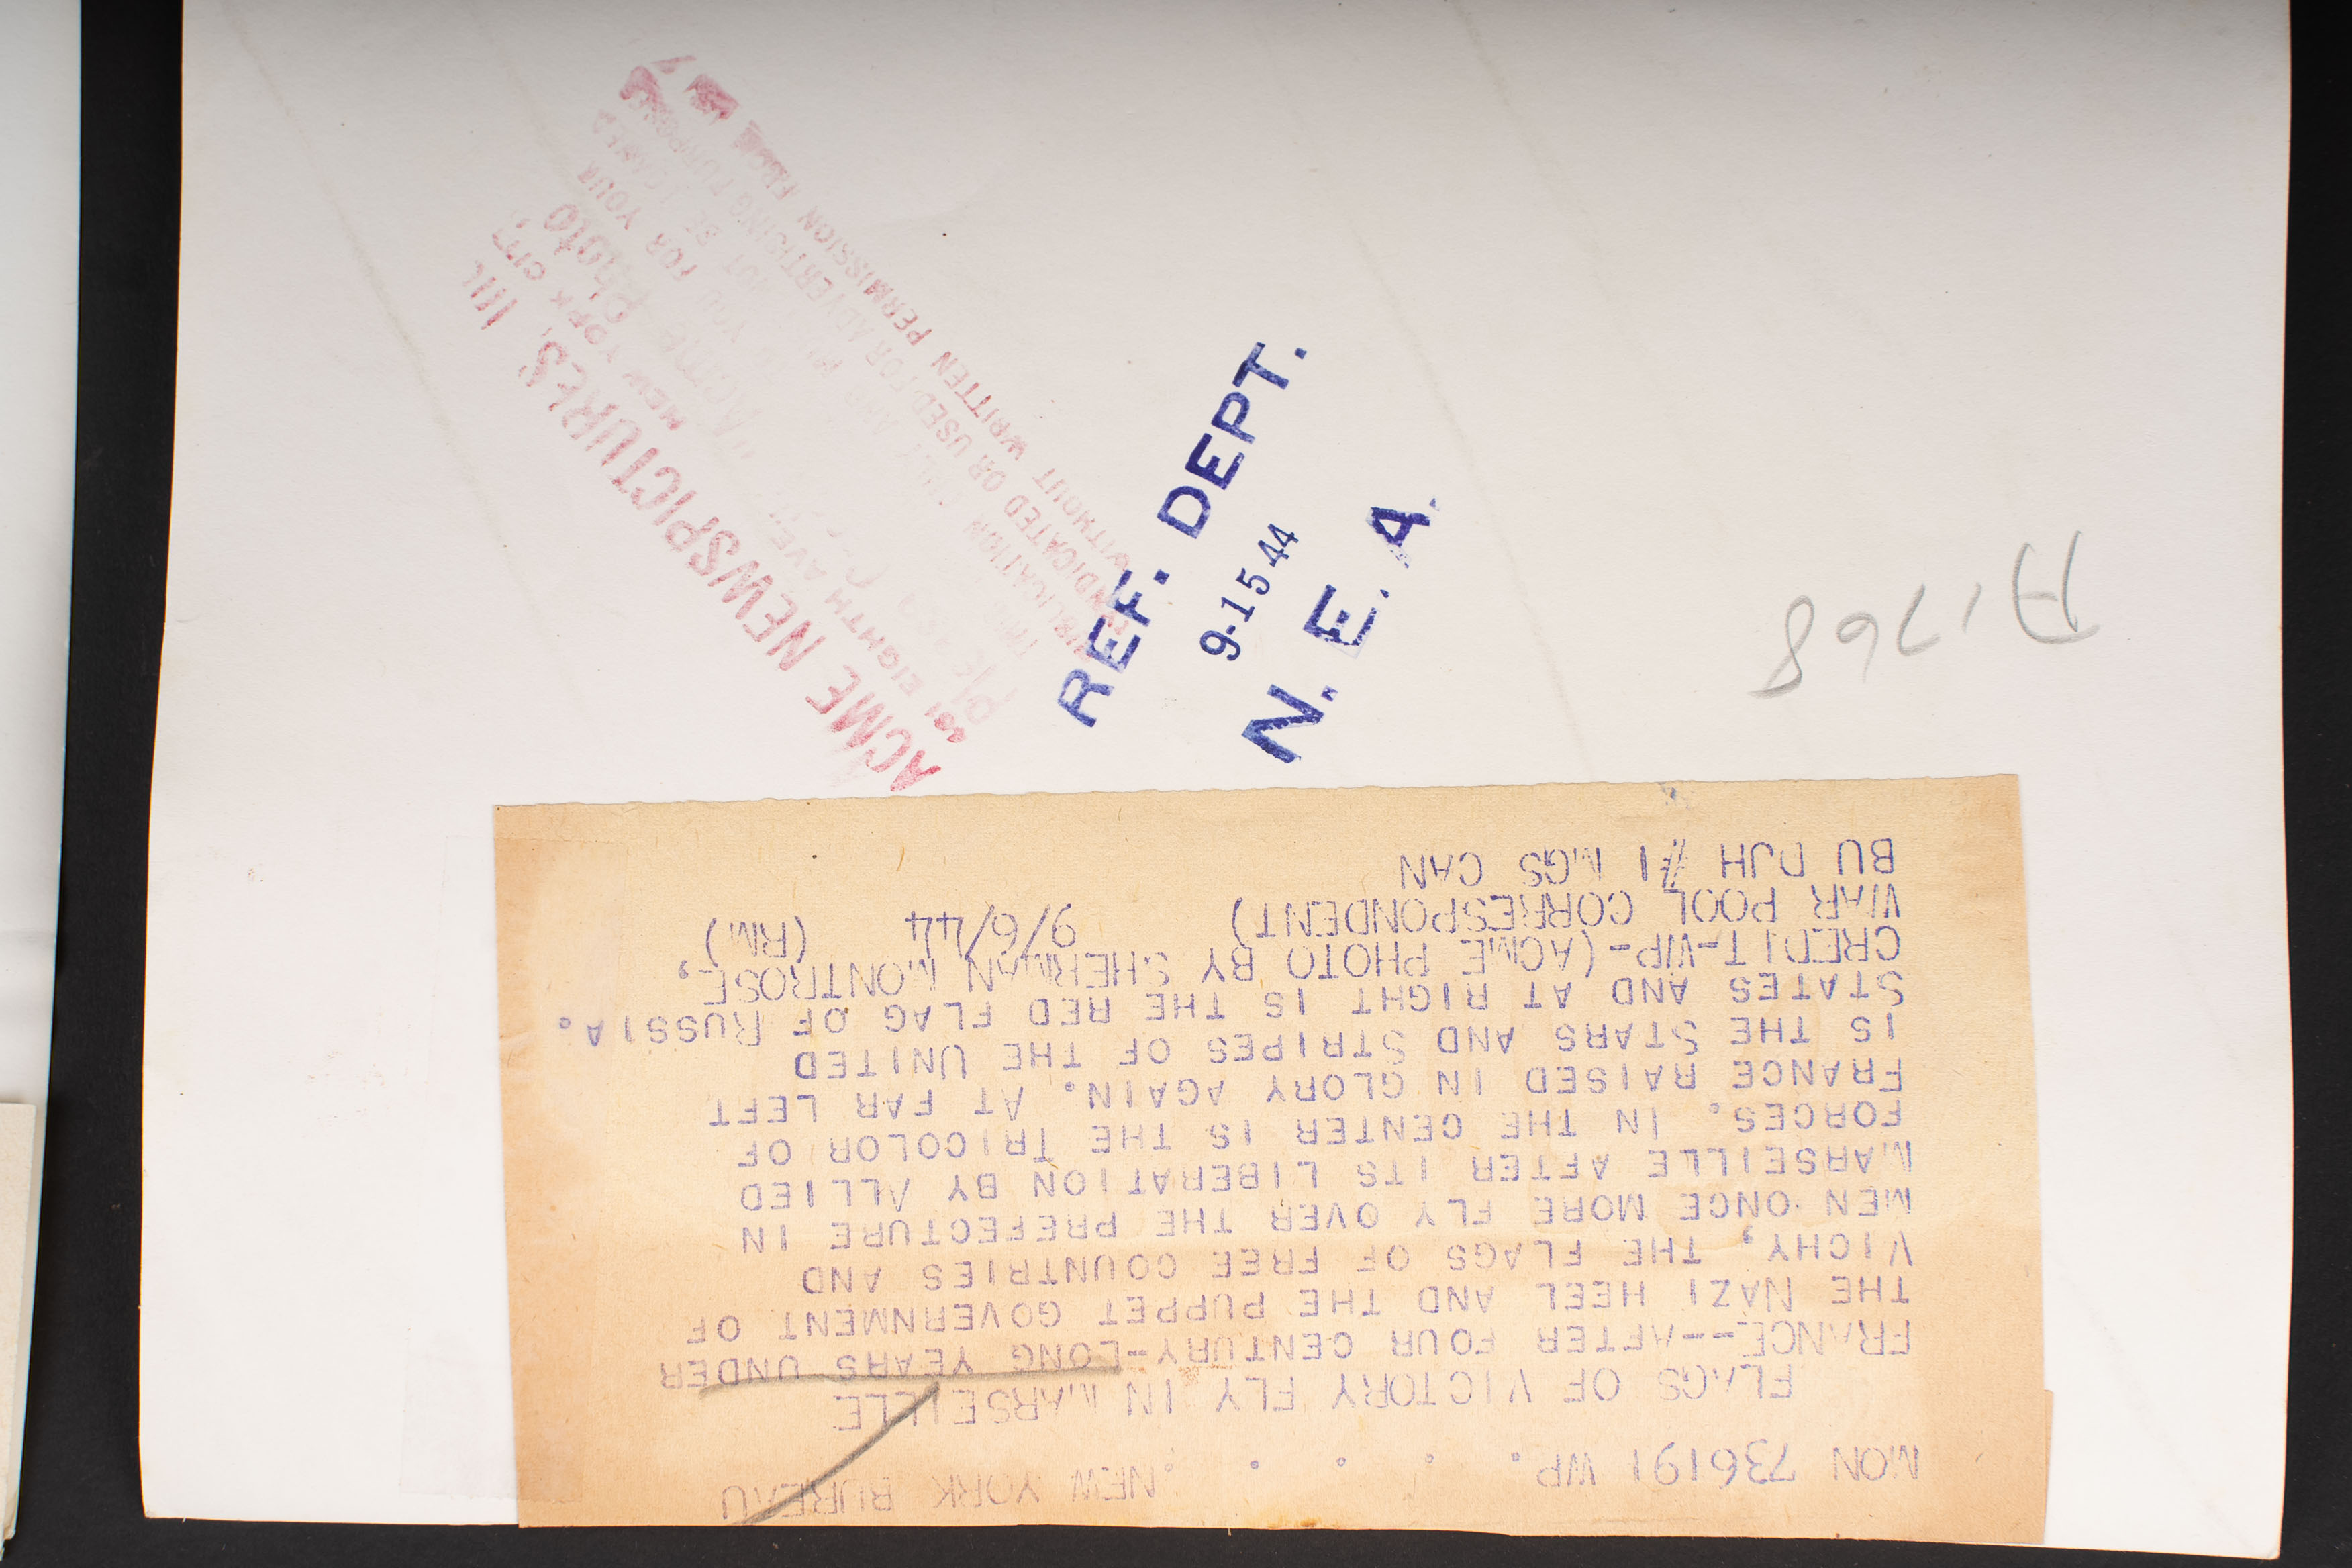 MON 736191 WP. . . . . NEW YORK BUREAU
FLAGS OF VICTORY FLY IN MARSEILLE
FRANCE--AFTER FOUR CENTURY-LONG YEARS UNDER
THE NAZI HEEL AND THE PUPPET GOVERNMENT OF
VICHY, THE FLAGS OF FREE COUNTRIES AND
MEN ONCE MORE FLY OVER THE PREFECTURE IN
MARSEILLE AFTER ITS LIBERATION BY ALLIED
FORCES. IN THE CENTER IS THE TRICOLOR OF
FRANCE RAISED IN GLORY AGAIN. AT FAR LEFT
IS THE STARS AND STRIPES OF THE UNITED
STATES AND AT RIGHT IS THE RED FLAG OF RUSSIA.
CREDIT-WP-(ACME PHOTO BY SHERMAN MONTROSE,
WAR POOL CORRESPONDENT) 9/6/44 (RM)
BU DJH #1 LGS CAN
A1768
REF. DEPT.
9-15 44
N. E. A.
ACME NEWSPICTURES, INC.
EIGHTH AVE. NEW YORK CITY
Acme Photo
FOR YOUR
BE LOANED
INDICATED OR USED FOR ADVERTISING PURPOSES
WITHOUT WRITTEN PERMISSION FROM